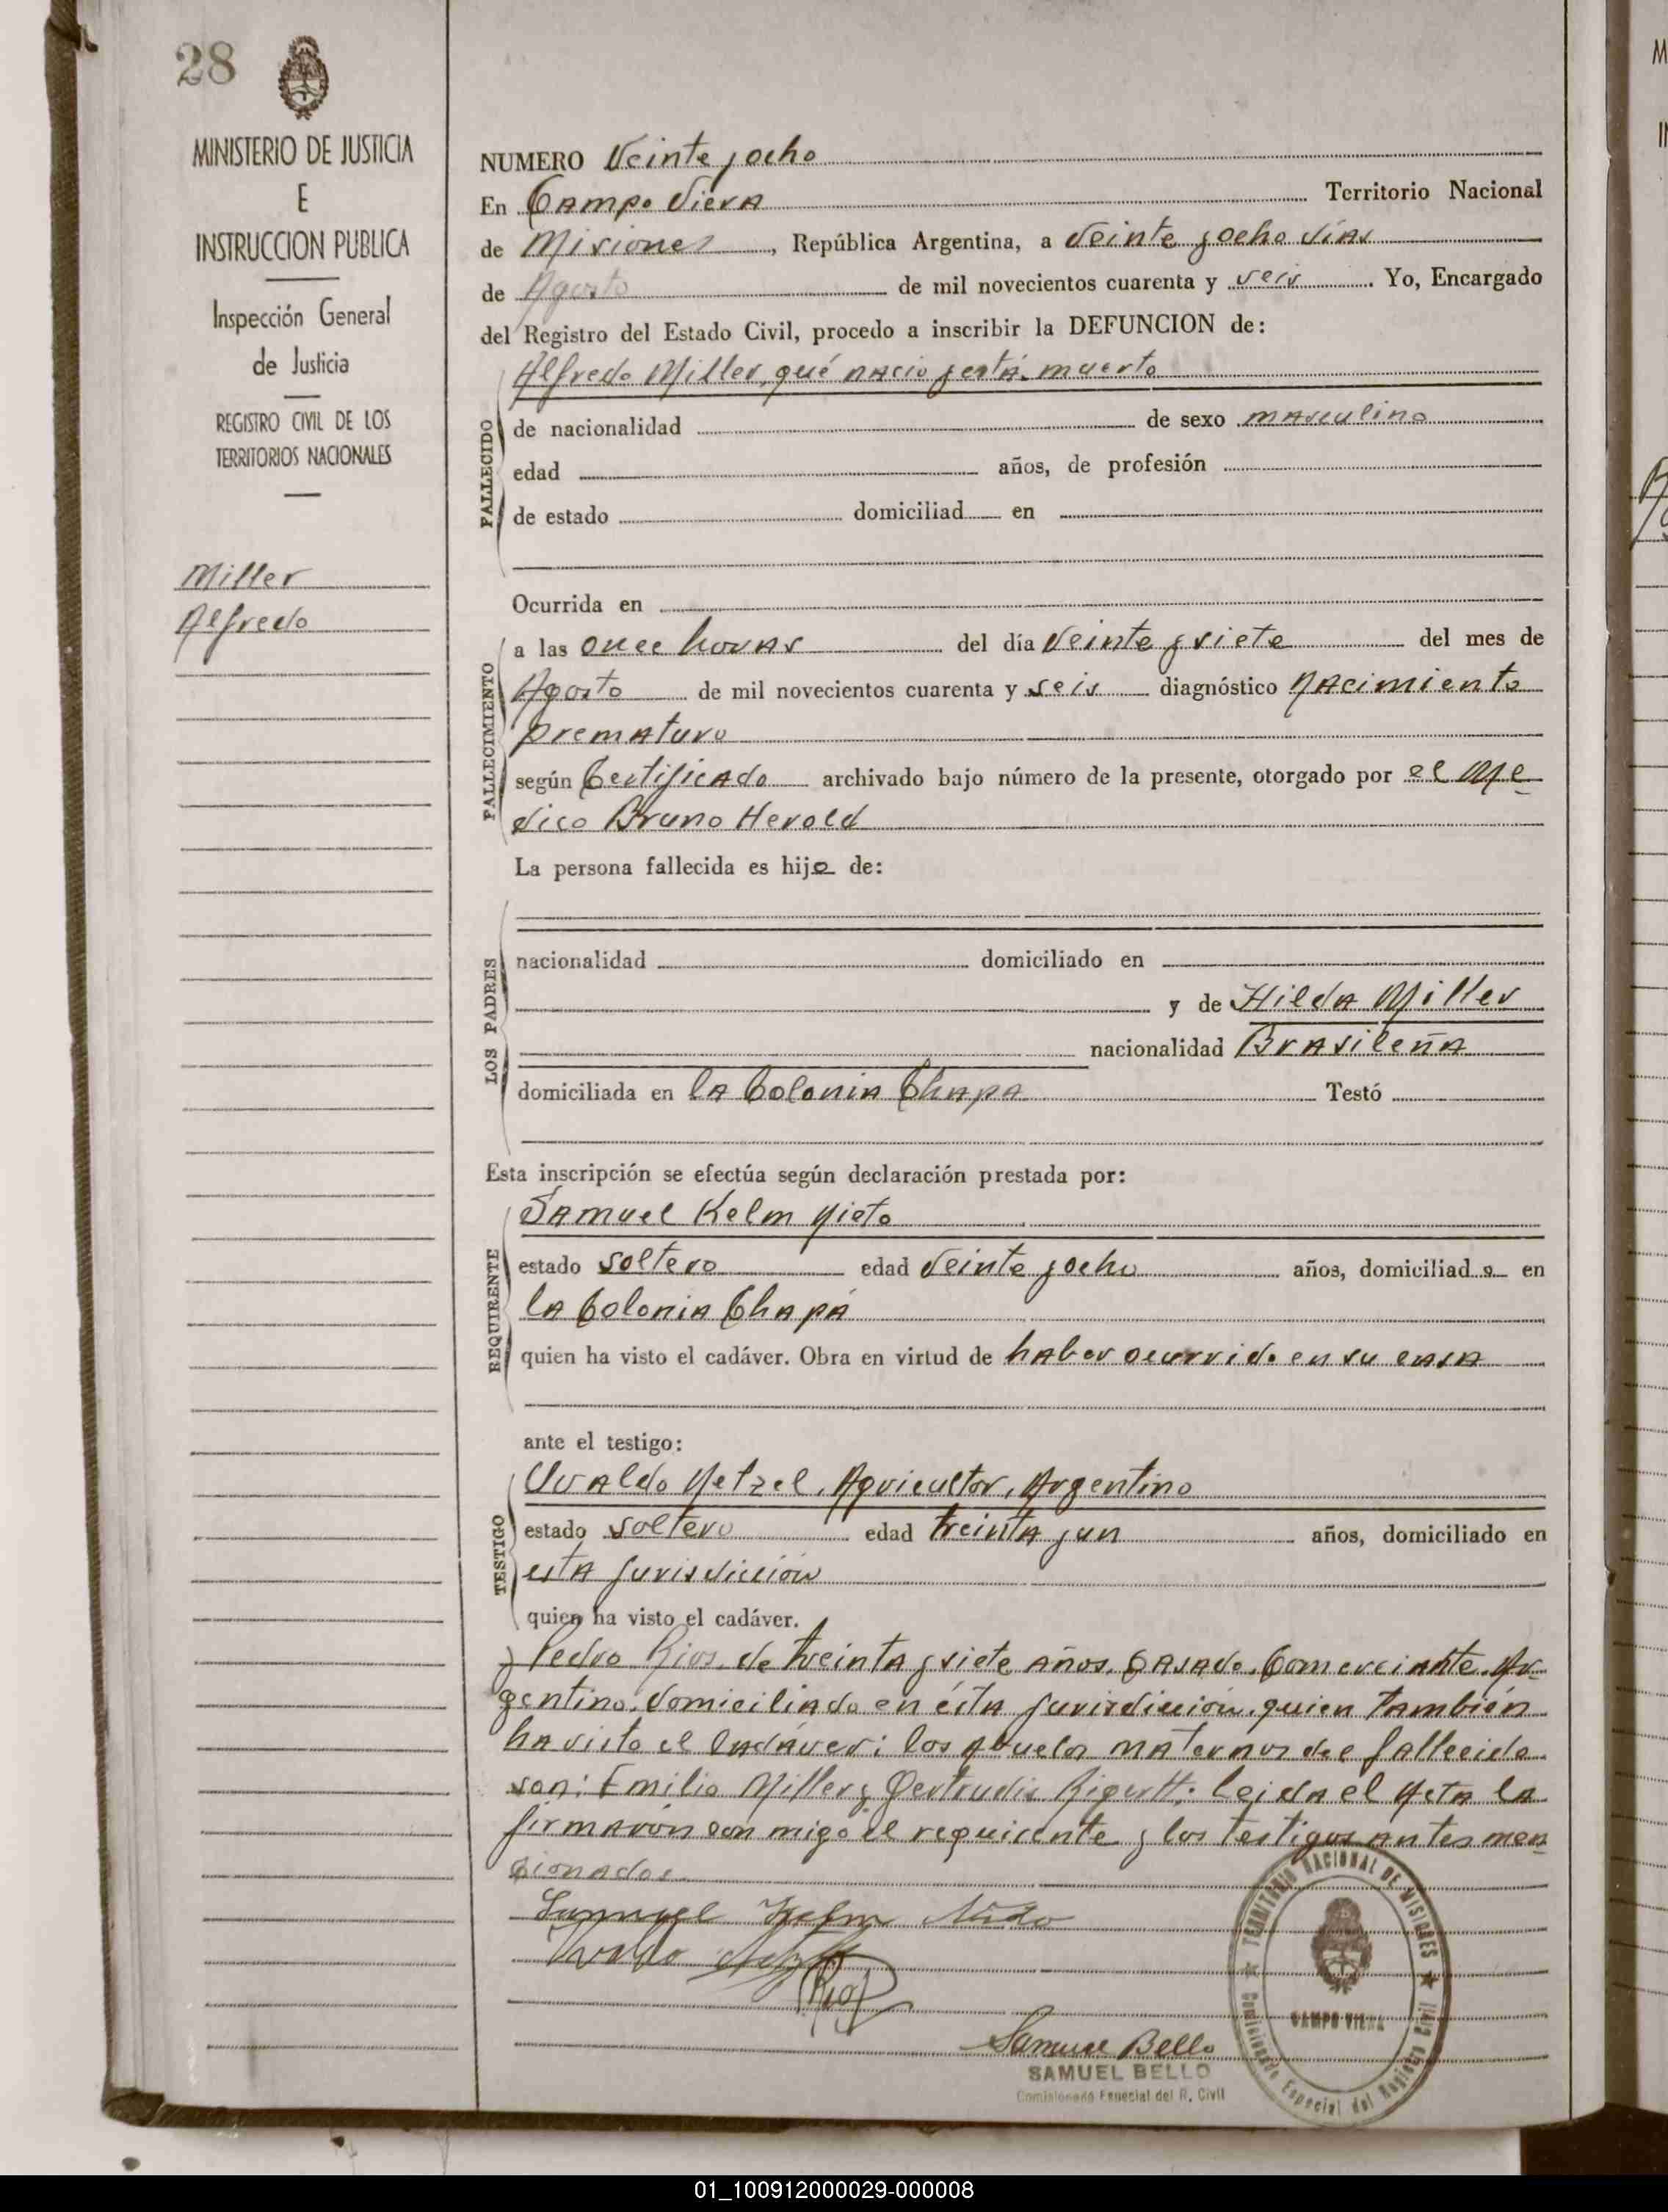 28
MINISTERIO DE JUSTICIA
E
INSTRUCCION PUBLICA
Inspección General
de Justicia
REGISTRO CIVIL DE LOS
TERRITORIOS NACIONALES
Miller
Alfredo
NUMERO Veinte y ocho
En Campo Viera Territorio Nacional
de Misiones, República Argentina, a Veinte y ocho días
de Agosto de mil novecientos cuarenta y seis. Yo, Encargado
del Registro del Estado Civil, procedo a inscribir la DEFUNCION de:
Alfredo Miller, qué nacio y está muerto
FALLECIDO
de nacionalidad de sexo masculino
edad años, de profesión
de estado domiciliad en
Ocurrida en
FALLECIMIENTO
a las once horas del día Veinte y siete del mes de
Agosto de mil novecientos cuarenta y seis diagnóstico Nacimiento
prematuro
según Certificado archivado bajo número de la presente, otorgado por el Me
dico Bruno Herold
La persona fallecida es hijo de:
LOS PADRES
nacionalidad domiciliado en
y de Hilda Miller
nacionalidad Brasileña
domiciliada en la Colonia Chapa Testó
Esta inscripción se efectúa según declaración prestada por:
REQUIRENTE
Samuel Kelm Nieto
estado soltero edad Veinte y ocho años, domiciliado en
la Colonia Chapá
quien ha visto el cadáver. Obra en virtud de haber ocurrido en su casa
ante el testigo:
TESTIGO
Uvaldo Netzel, Agricultor, Argentino
estado soltero edad treinta y un años, domiciliado en
esta jurisdicción
quien ha visto el cadáver.
y Pedro Rios, de treinta y siete años, casado, Comerciante, Ar-
gentino, domiciliado en ésta jurisdicción, quien también
ha visto el cadáver; los abuelos maternos del fallecido
son: Emilio Miller y Gertrudis Ripertt. Leida el Acta la
firmarón con migo el requirente y los testigos antes men
cionados.
Samuel Kelm Nieto
Rios
Samuel Bello
SAMUEL BELLO
Comisionado Especial del R. Civil
TERRITORIO NACIONAL DE MISIONES
CAMPO VIERA
Comisionado Especial del Registro Civil
01_100912000029-000008